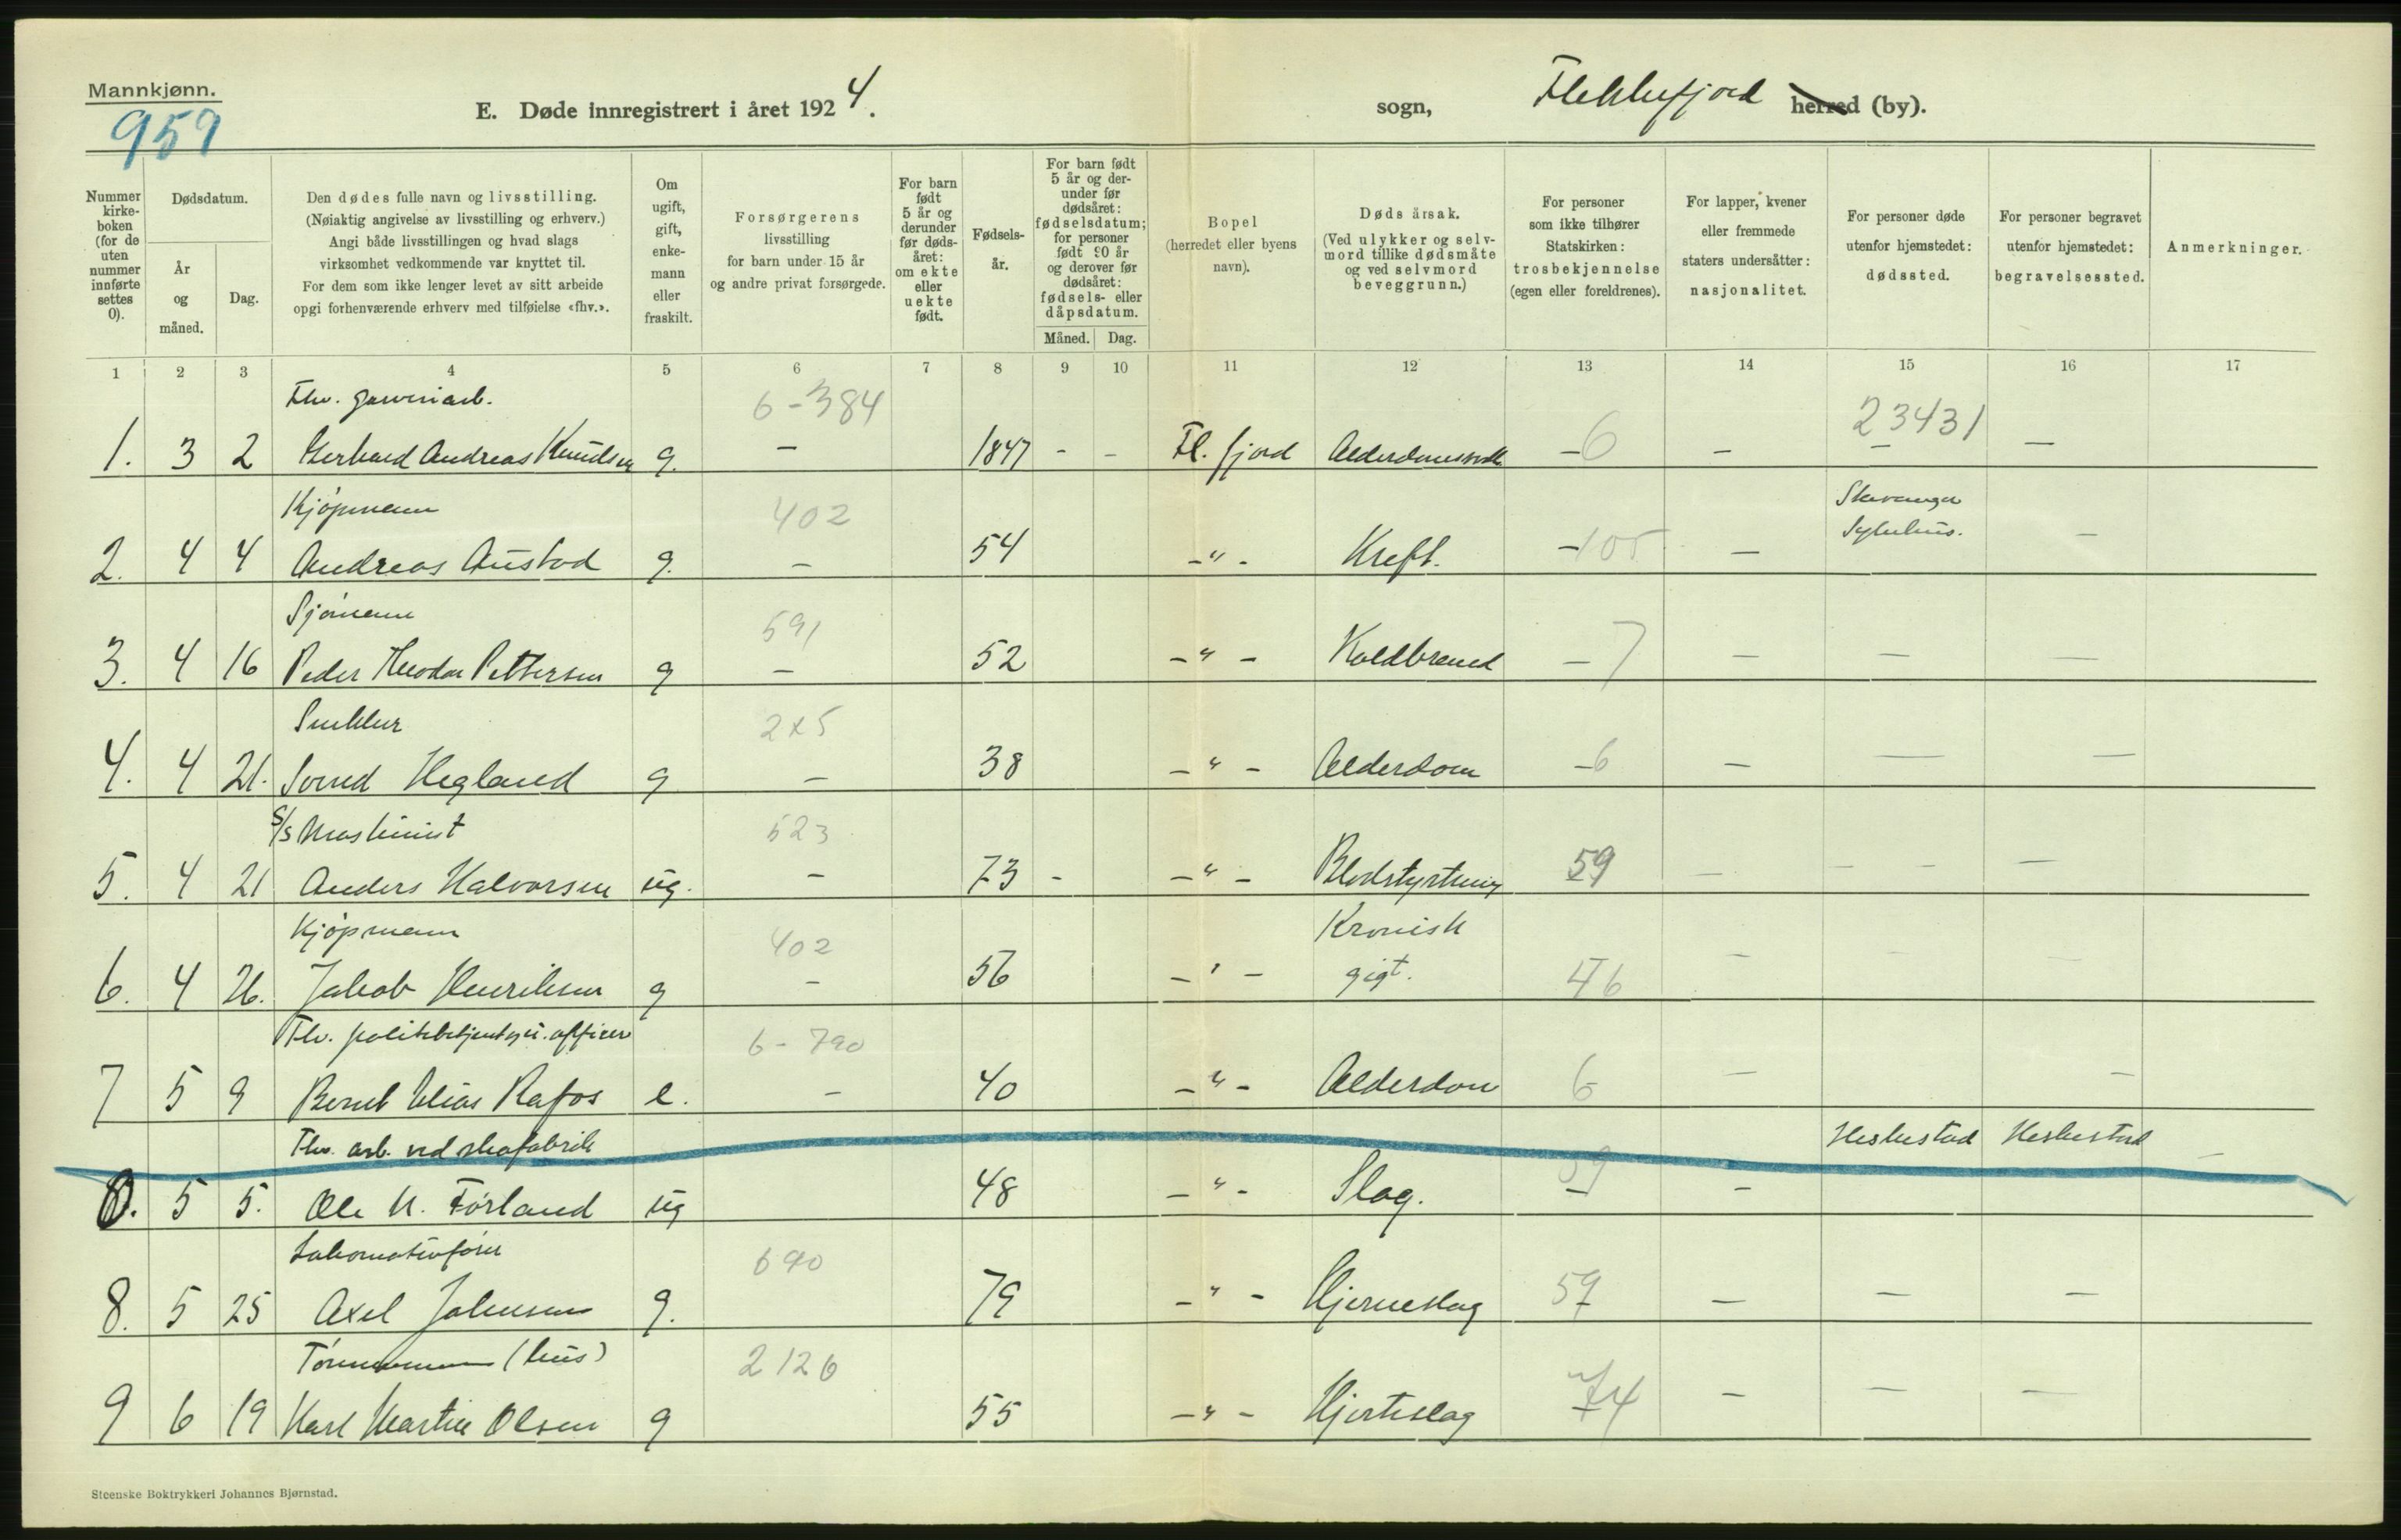 Mannkjønn.
959
E. Døde innregistrert i året 1924.
sogn, Flekkefjord herred (by).
Nummer kirke-boken (for de uten nummer innførte settes 0).
Dødsdatum.
År og måned.
Dag.
Den dødes fulle navn og livsstilling.
(Nøiaktig angivelse av livsstilling og erhverv.)
Angi både livsstillingen og hvad slags
virksomhet vedkommende var knyttet til.
For dem som ikke lenger levet av sitt arbeide
opgi forhenværende erhverv med tilføielse «fhv.».
Om ugift, gift, enke-mann eller fraskilt.
Forsørgerens
livsstilling
for barn under 15 år
og andre privat forsørgede.
For barn født 5 år og derunder før døds-året: om ekte eller uekte født.
Fødsels-år.
For barn født 5 år og der-under før dødsåret: fødselsdatum; for personer født 90 år og derover før dødsåret: fødsels- eller dåpsdatum.
Måned. Dag.
Bopel
(herredet eller byens navn).
Døds årsak.
(Ved ulykker og selv-mord tillike dødsmåte og ved selvmord beveggrunn.)
For personer som ikke tilhører Statskirken: trosbekjennelse (egen eller foreldrenes).
For lapper, kvener eller fremmede staters undersåtter: nasjonalitet.
For personer døde utenfor hjemstedet: dødssted.
For personer begravet utenfor hjemstedet: begravelsessted.
Anmerkninger.
1 2 3 4 5 6 7 8 9 10 11 12 13 14 15 16 17
Fhv. garveriarb. 6-384 23431
1. 3 2 Gerhard Andreas Knudsen g. - 1847 - - Fl.fjord - 6 - - -
Kjøpmann 402 Stavanger
Sykehus.
2. 4 4 Andreas Austad g. - 54 -"- Kreft. - 105 - -
Sjømann 591
3. 4 16 Peder Theodor Pettersen g - 52 -"- Koldbrand - 7 - - -
Snekker 2x5
4. 4 21. Hegland g - 38 -"- Alderdom - 6 - - -
S/s Maskinist 523
5. 4 21 Anders Halvorsen ug. - 73 - -"- Blodstyrtning 59 - - - -
Kjøpmann 402 Kronisk
6. 4 26. Jakob Henriksen g - 56 -"- gigt. 46 - -
Fhv. 6-790
7 5 9 Rafos e. - 40 -"- Alderdom 6 - -
Fhv. arb. ved skofabrik Heskestad Heskestad -
0. 5 5. Ole Førland ug 48 -"- Slag. 59 - -
Lokomotivfører 690
8. 5 25 Axel Johnsen g. 79 -"- Hjerneslag 57 - - -
Tømmermann (hus) 2126
9 6 19 Karl Martin Olsen g 55 -"- Hjerteslag 74 - - -
Steenske Boktrykkeri Johannes Bjørnstad.